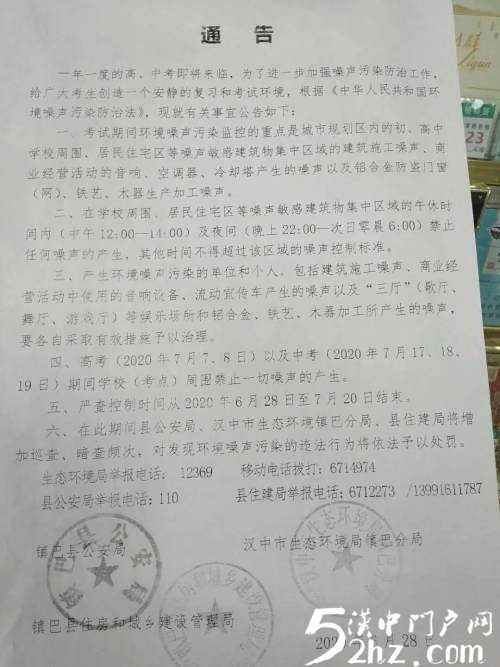 通 告
一年一度的高、中考即将来临，为了进一步加强噪声污染防治工作，
给广大考生创造一个安静的复习和考试环境，根据《中华人民共和国环
境噪声污染防治法》，现就有关事宜公告如下：
一、考试期间环境噪声污染监控的重点是城市规划区内的初、高中
学校周围、居民住宅区等噪声敏感建筑物集中区域的建筑施工噪声、商
业经营活动的音响、空调器、冷却塔产生的噪声以及铝合金防盗门窗
（网）、铁艺、木器生产加工噪声。
二、在学校周围、居民住宅区等噪声敏感建筑物集中区域的午休时
间内（中午 12:00—14:00）及夜间（晚上 22:00—次日零晨 6:00）禁止
任何噪声的产生，其他时间不得超过该区域的噪声控制标准。
三、产生环境噪声污染的单位和个人，包括建筑施工噪声、商业经
营活动中使用的音响设备、流动宣传车产生的噪声以及“三厅”（歌厅、
舞厅、游戏厅）等娱乐场所和铝合金、铁艺、木器加工所产生的噪声，
要各自采取有效措施予以治理。
四、高考（2020 年 7 月 7、8 日）以及中考（2020 年 7 月 17、18、
19 日）期间学校（考点）周围禁止一切噪声的产生。
五、严查控制时间从 2020 年 6 月 28 日至 7 月 20 日结束。
六、在此期间县公安局、汉中市生态环境镇巴分局、县住建局将增
加巡查、暗查频次，对发现环境噪声污染的违法行为将依法予以处罚。
生态环境局举报电话： 12369 移动电话拨打：6714974
县公安局举报电话：110 县住建局举报电话：6712273 /13991611787
镇巴县公安局 汉中市生态环境局镇巴分局
镇巴县公安局
镇巴县住房和城乡建设管理局
月 28 日
汉中门户网
52hz.com
23